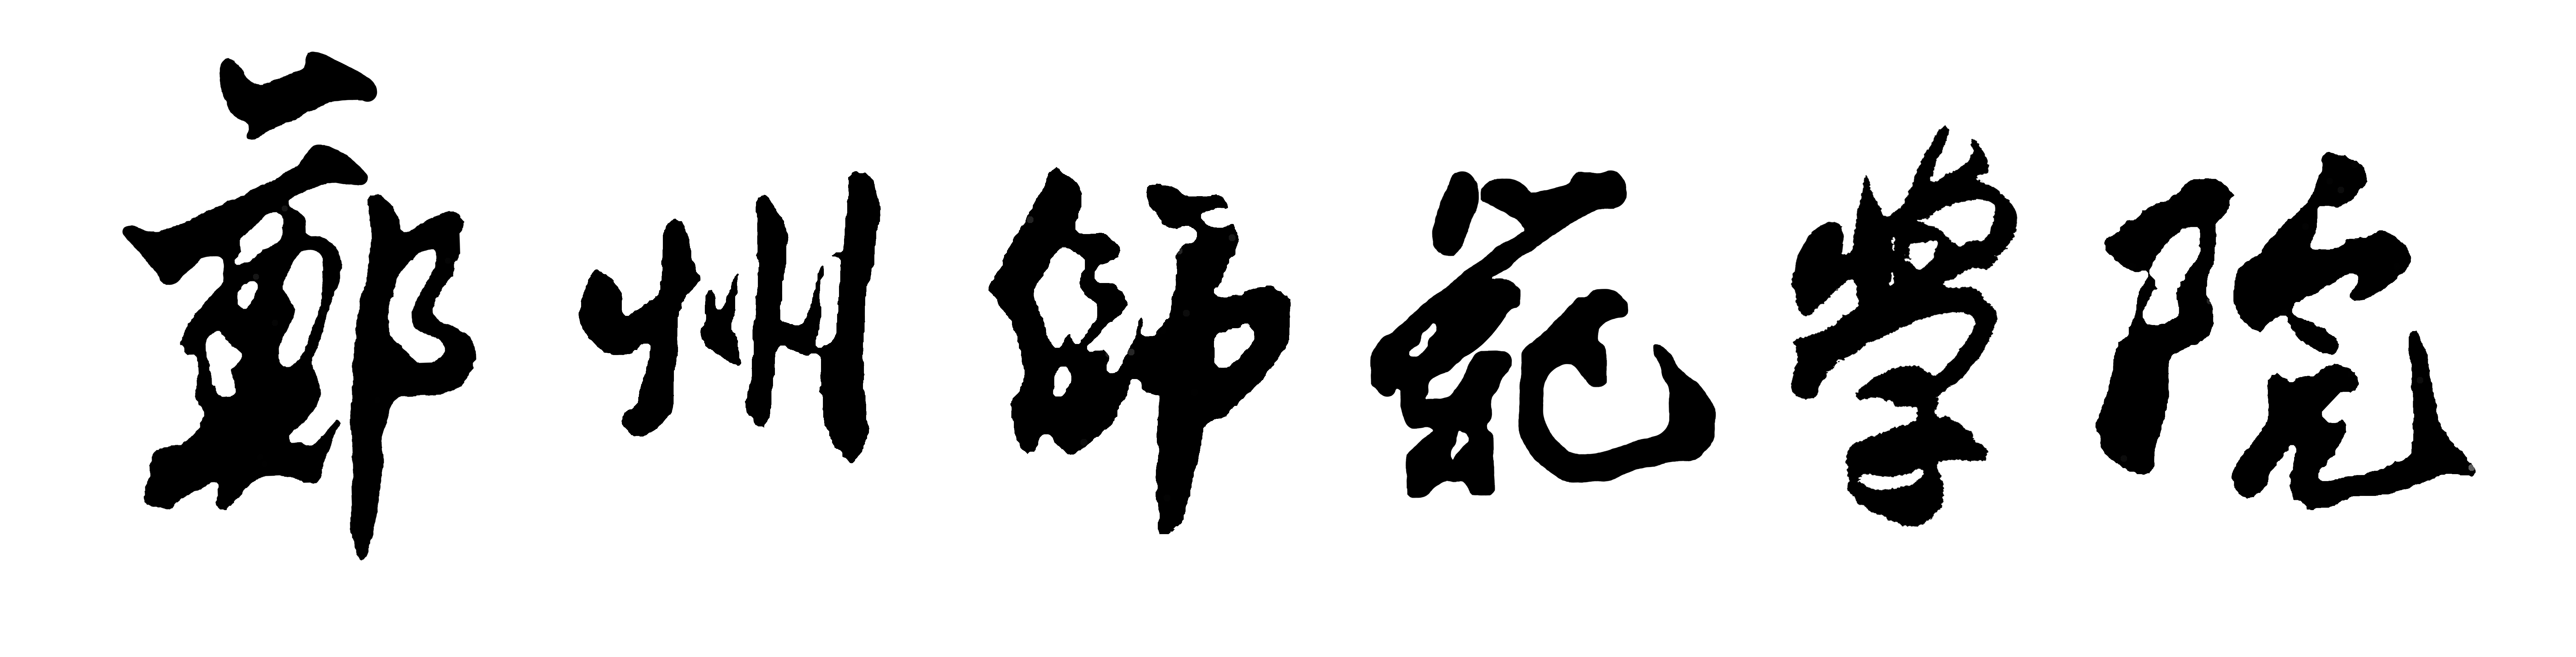 鄭州師範学院